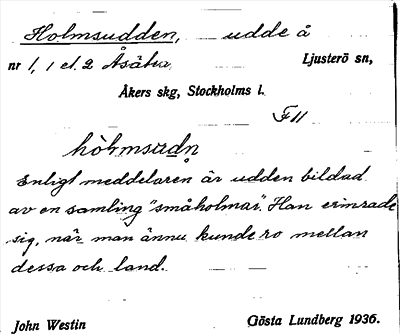 Holmsudden, udde å
nr 1, 1 et. 2 Åsätra Ljusterö sn,
Åkers skg, Stockholms l.
F 11
hòlmsudn
Enligt meddelaren är udden bildad
av en samling "småholmar". Han erinrade
sig, när man ännu kunde ro mellan
dessa och land.
John Westin Gösta Lundberg 1936.